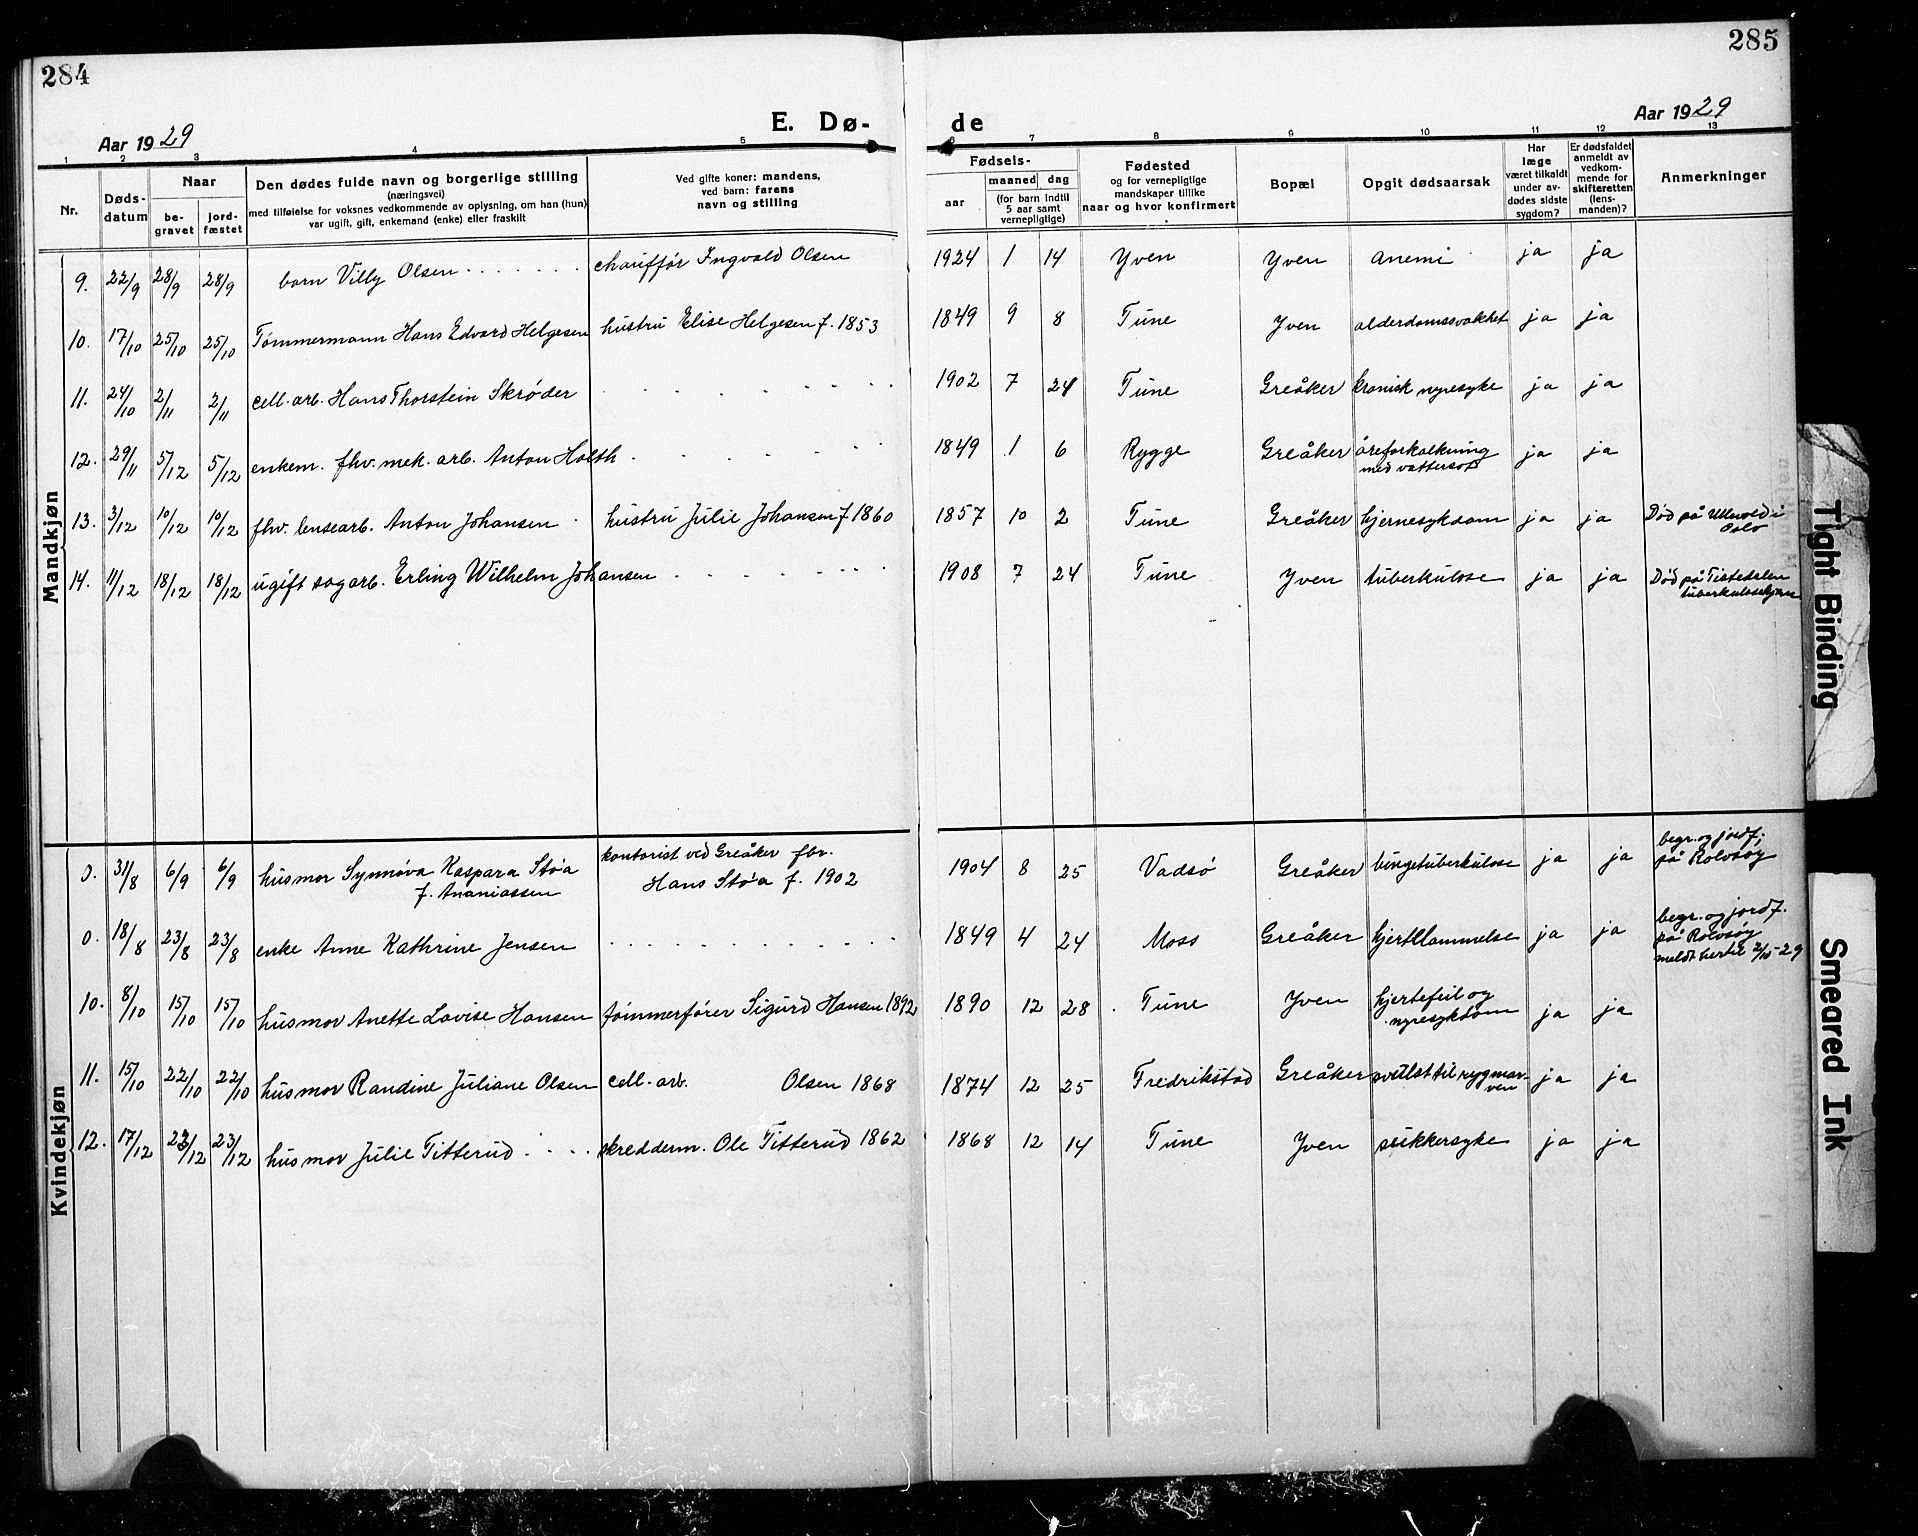 284
285
Aar 1929
E. Dø-
de
Aar 1929
1 2 3 4 5 6 7 8 9 10 11 12 13
Nr.
Døds-
datum
Naar
be-
gravet
jord-
fæstet
Den dødes fulde navn og borgerlige stilling
(næringsvei)
med tilføielse for voksnes vedkommende av oplysning, om han (hun)
var ugift, gift, enkemand (enke) eller fraskilt
Ved gifte koner: mandens,
ved barn: farens
navn og stilling
Fødsels-
aar
maaned dag
(for barn indtil
5 aar samt
vernepligtige)
Fødested
og for vernepligtige
mandskaper tillike
naar og hvor konfirmert
Bopæl
Opgit dødsaarsak
Har
læge
været tilkaldt
under av-
dødes sidste
sygdom?
Er dødsfaldet
anmeldt av
vedkom-
mende for
skifteretten
(lens-
manden)?
Anmerkninger
Mandkjøn
9. 22/9 28/9 28/9 barn Villy Olsen . . . . . . . chauffør Ingvald Olsen 1924 1 14 Yven Yven anemi ja ja
10. 17/10 25/10 25/10 Tømmermann Hans Edvard Helgesen hustru Elise Helgesen f. 1853 1849 9 8 Tune Yven alderdomssvakhet ja ja
11. 24/10 2/11 2/11 cell. arb. Hans Thorstein Skrøder . . . . . . . 1902 7 24 Tune Greåker kronisk nyresyke ja ja
12. 29/11 5/12 5/12 enkem. fhv. mek. arb. Anton Holth . . . . . . 1849 1 6 Rygge Greåker åreforkalkning ja ja
med vattersot
13. 3/12 10/12 10/12 fhv. lensearb. Anton Johansen . hustru Julie Johansen f 1860 1857 10 2 Tune Greåker hjernesykdom ja ja Død på Ullevold i
Oslo
14. 11/12 18/12 18/12 ugift sagarb. Erling Wilhelm Johansen . . . . . . . 1908 7 24 Tune Yven tuberkulose ja ja Død på Tistedalen
tuberkulosehjem
Kvindekjøn
0. 31/8 6/9 6/9 husmor Synnøva Kaspara Støa kontorist ved Greåker fbr. 1904 8 25 Vadsø Greåker lungetuberkulose ja ja begr. og jordf.
f. Ananiassen Hans Støa f. 1902 på Rolvsøy
0. 18/8 23/8 23/8 enke Anne Kathrine Jensen . . . . . . . . . . . . 1849 4 24 Moss Greåker hjertelammelse ja ja begr. og jordf.
på Rolvsøy
meldt hertil 2/10-29
10. 8/10 15/10 15/10 husmor Anette Lovise Hansen tømmerfører Sigurd Hansen 1892 1890 12 28 Tune Yven hjertefeil og ja ja
nyresykdom
11. 15/10 22/10 22/10 husmor Randine Juliane Olsen cell. arb. Olsen 1868 1874 12 25 Fredrikstad Greåker svulst til rygmar- ja ja
ven
12. 17/12 23/12 23/12 husmor Julie Titterud . . . . skredderm. Ole Titterud 1862 1868 12 14 Tune Yven sukkersyke ja ja
Tight Binding
Smeared Ink